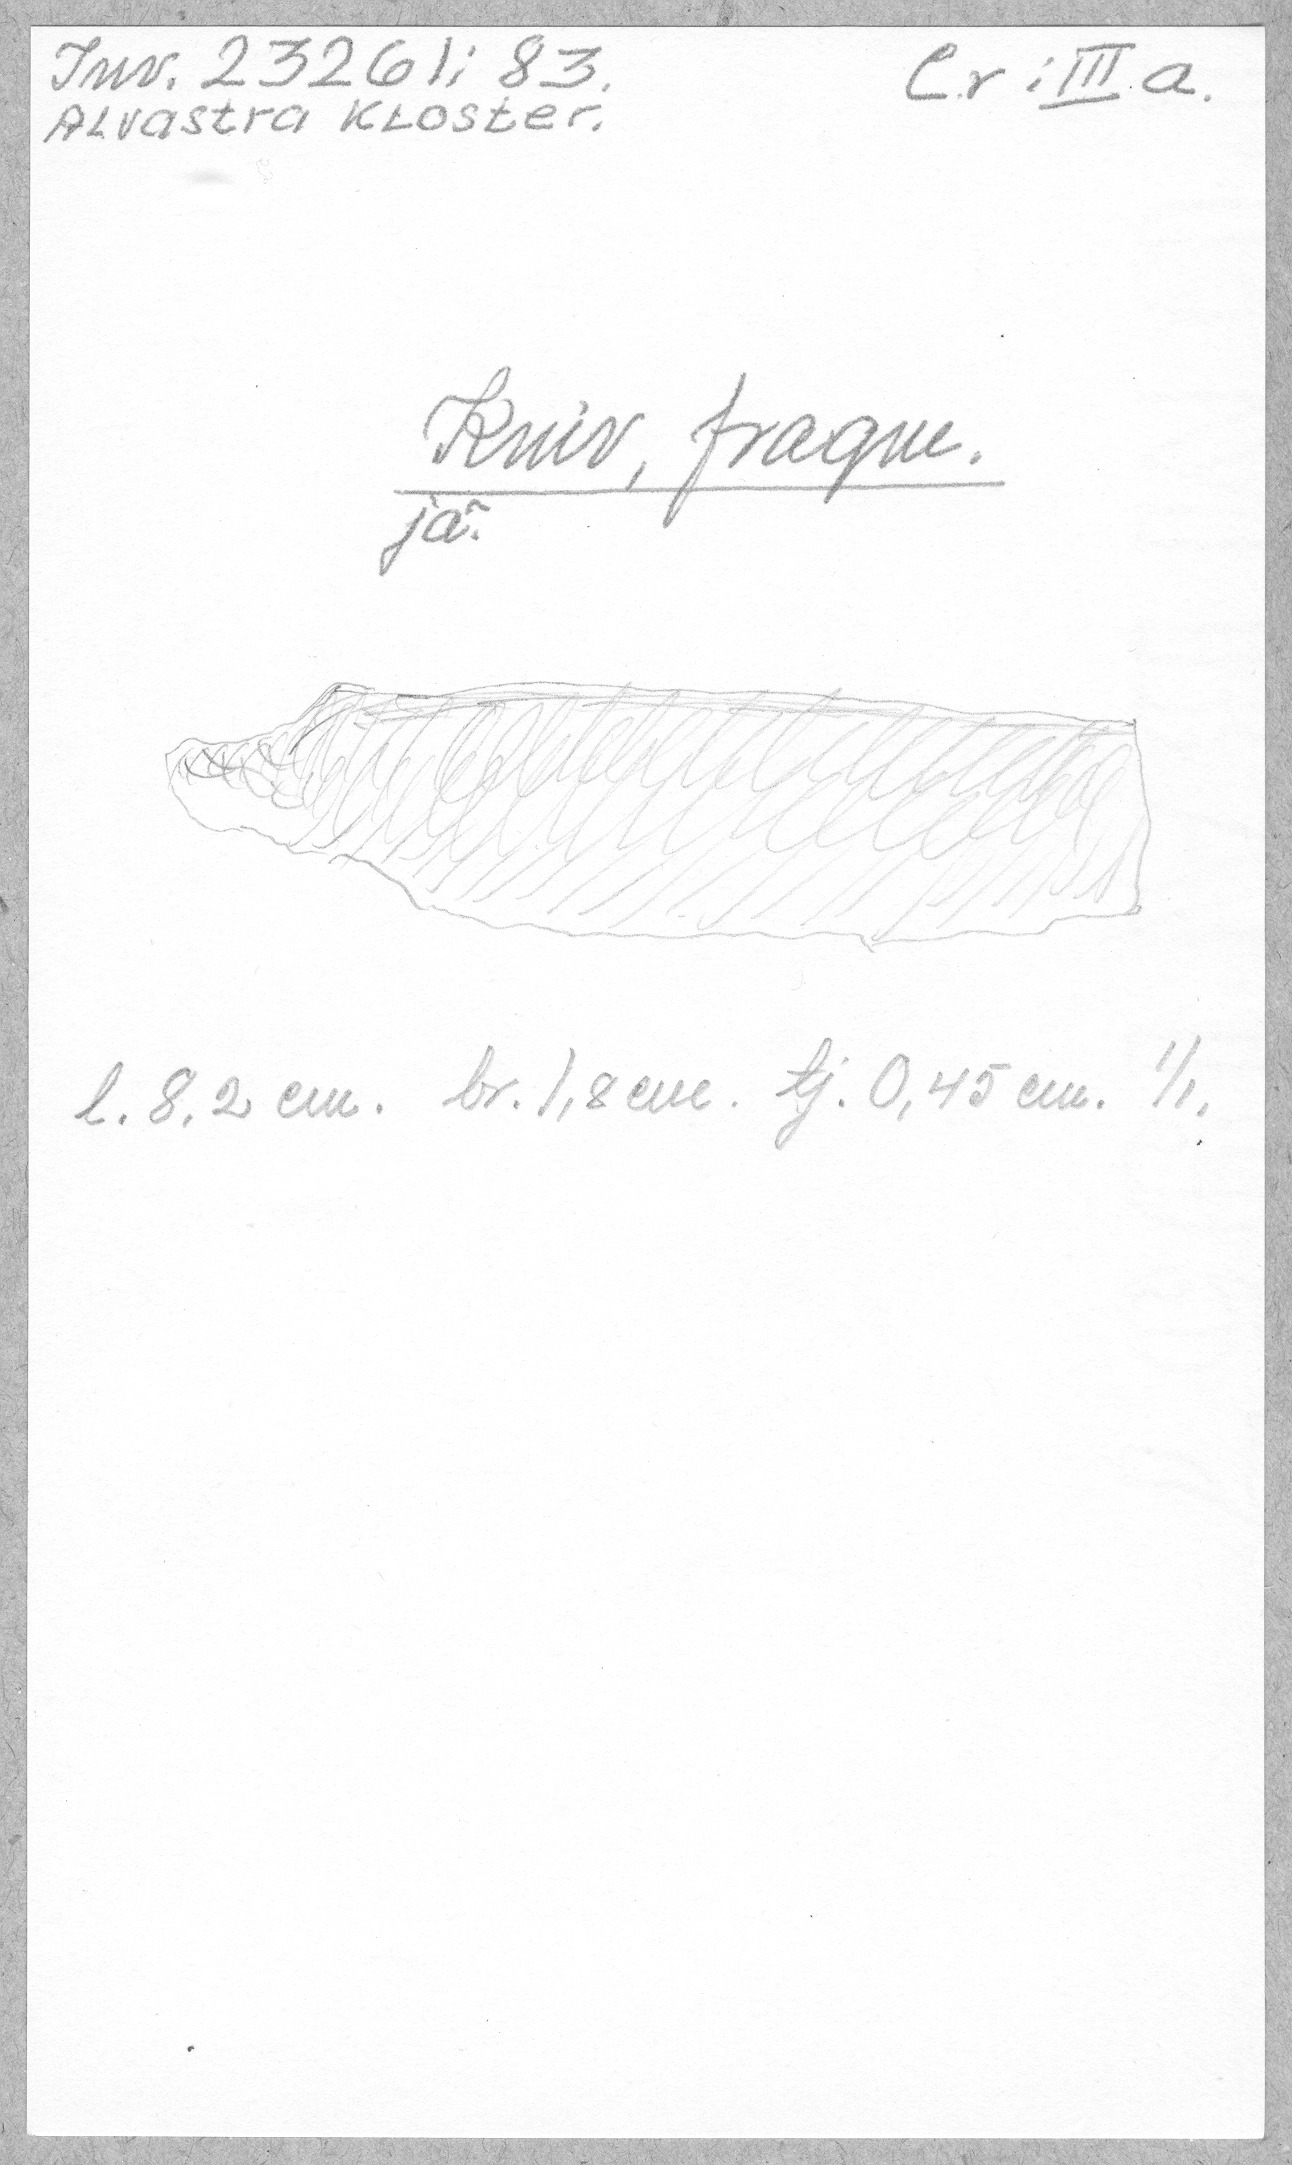 Inv. 23261:83.
Cr:III.a.
Alvastra Kloster.
Kniv, fragm.
jä.
l. 8,2 cm. br. 1,8 cm. tj. 0,45 cm. 1/1.